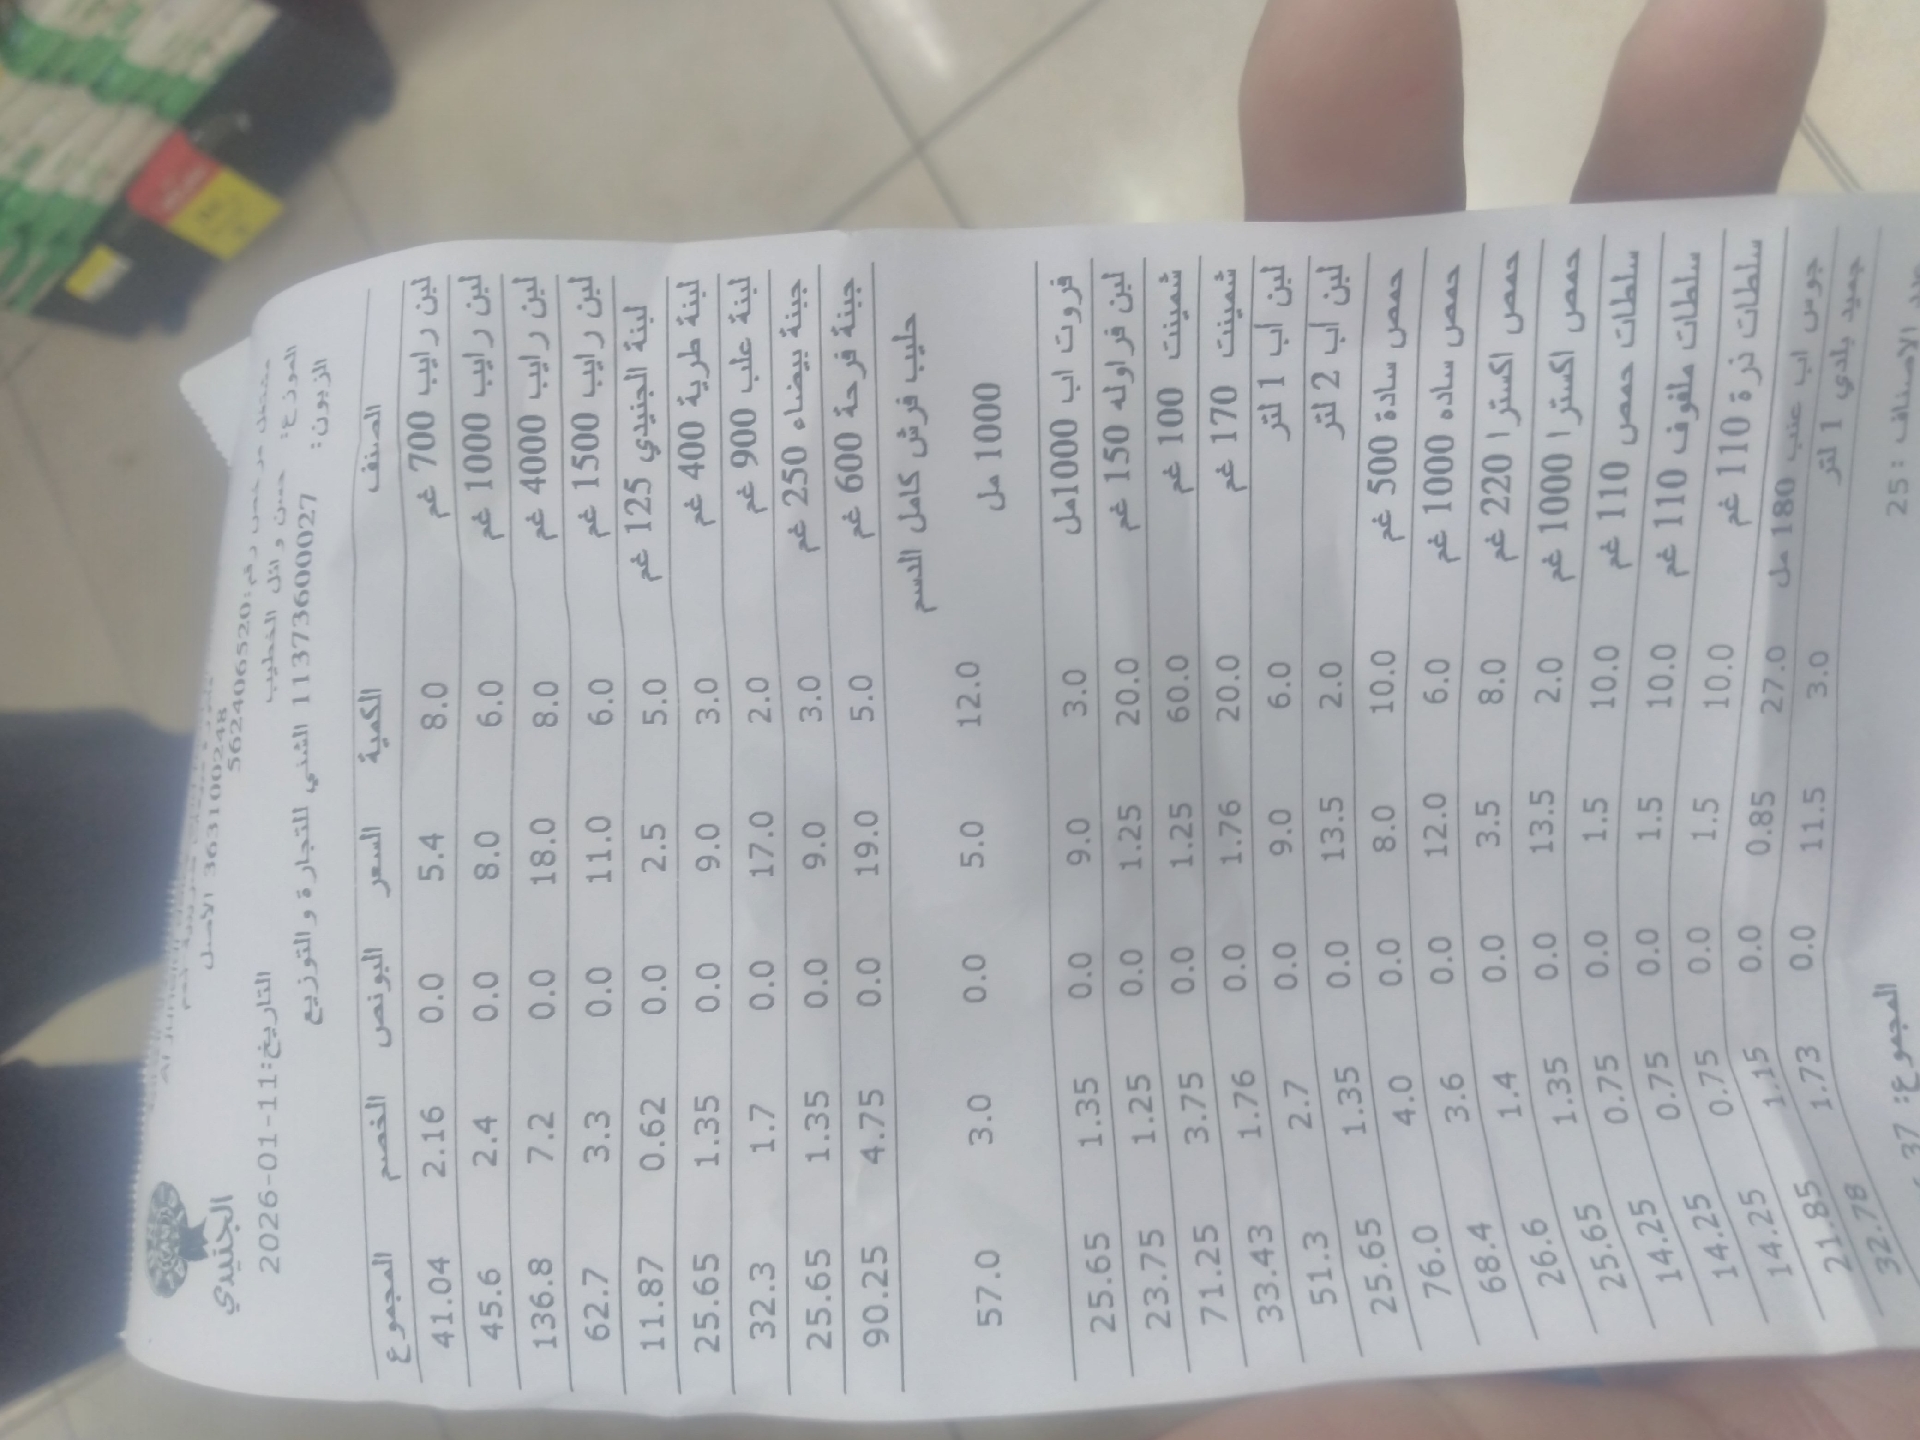 الجنيدي
الاصل 363100248
مشتغل مرخص رقم:562406520
الموزع: حسن وائل الخطيب التاريخ:11-01-2026
الزبون: 1137360000027 الشني للتجارة والتوزيع
الصنف الكمية السعر البونص الخصم المجموع
لبن رايب 700 غم 8.0 5.4 0.0 2.16 41.04
لبن رايب 1000 غم 6.0 8.0 0.0 2.4 45.6
لبن رايب 4000 غم 8.0 18.0 0.0 7.2 136.8
لبن رايب 1500 غم 6.0 11.0 0.0 3.3 62.7
لبنة الجنيدي 125 غم 5.0 2.5 0.0 0.62 11.87
لبنة طرية 400 غم 3.0 9.0 0.0 1.35 25.65
لبنة علب 900 غم 2.0 17.0 0.0 1.7 32.3
جبنة بيضاء 250 غم 3.0 9.0 0.0 1.35 25.65
جبنة فرحة 600 غم 5.0 19.0 0.0 4.75 90.25
حليب فرش كامل الدسم
1000 مل 12.0 5.0 0.0 3.0 57.0
فروت اب 1000مل 3.0 9.0 0.0 1.35 25.65
لبن فراوله 150 غم 20.0 1.25 0.0 1.25 23.75
شمينت 100 غم 60.0 1.25 0.0 3.75 71.25
شمينت 170 غم 20.0 1.76 0.0 1.76 33.43
لبن اب 1 لتر 6.0 9.0 0.0 2.7 51.3
لبن اب 2 لتر 2.0 13.5 0.0 1.35 25.65
حمص سادة 500 غم 10.0 8.0 0.0 4.0 76.0
حمص ساده 1000 غم 6.0 12.0 0.0 3.6 68.4
حمص اكسترا 220 غم 8.0 3.5 0.0 1.4 26.6
حمص اكسترا 1000 غم 2.0 13.5 0.0 1.35 25.65
سلطات حمص 110 غم 10.0 1.5 0.0 0.75 14.25
سلطات ملفوف 110 غم 10.0 1.5 0.0 0.75 14.25
سلطات ذرة 110 غم 10.0 1.5 0.0 0.75 14.25
جوس اب عنب 180 مل 27.0 0.85 0.0 1.15 21.85
جميد بلدي 1 لتر 3.0 11.5 0.0 1.73 32.78
عدد الاصناف: 25 المجموع: 37